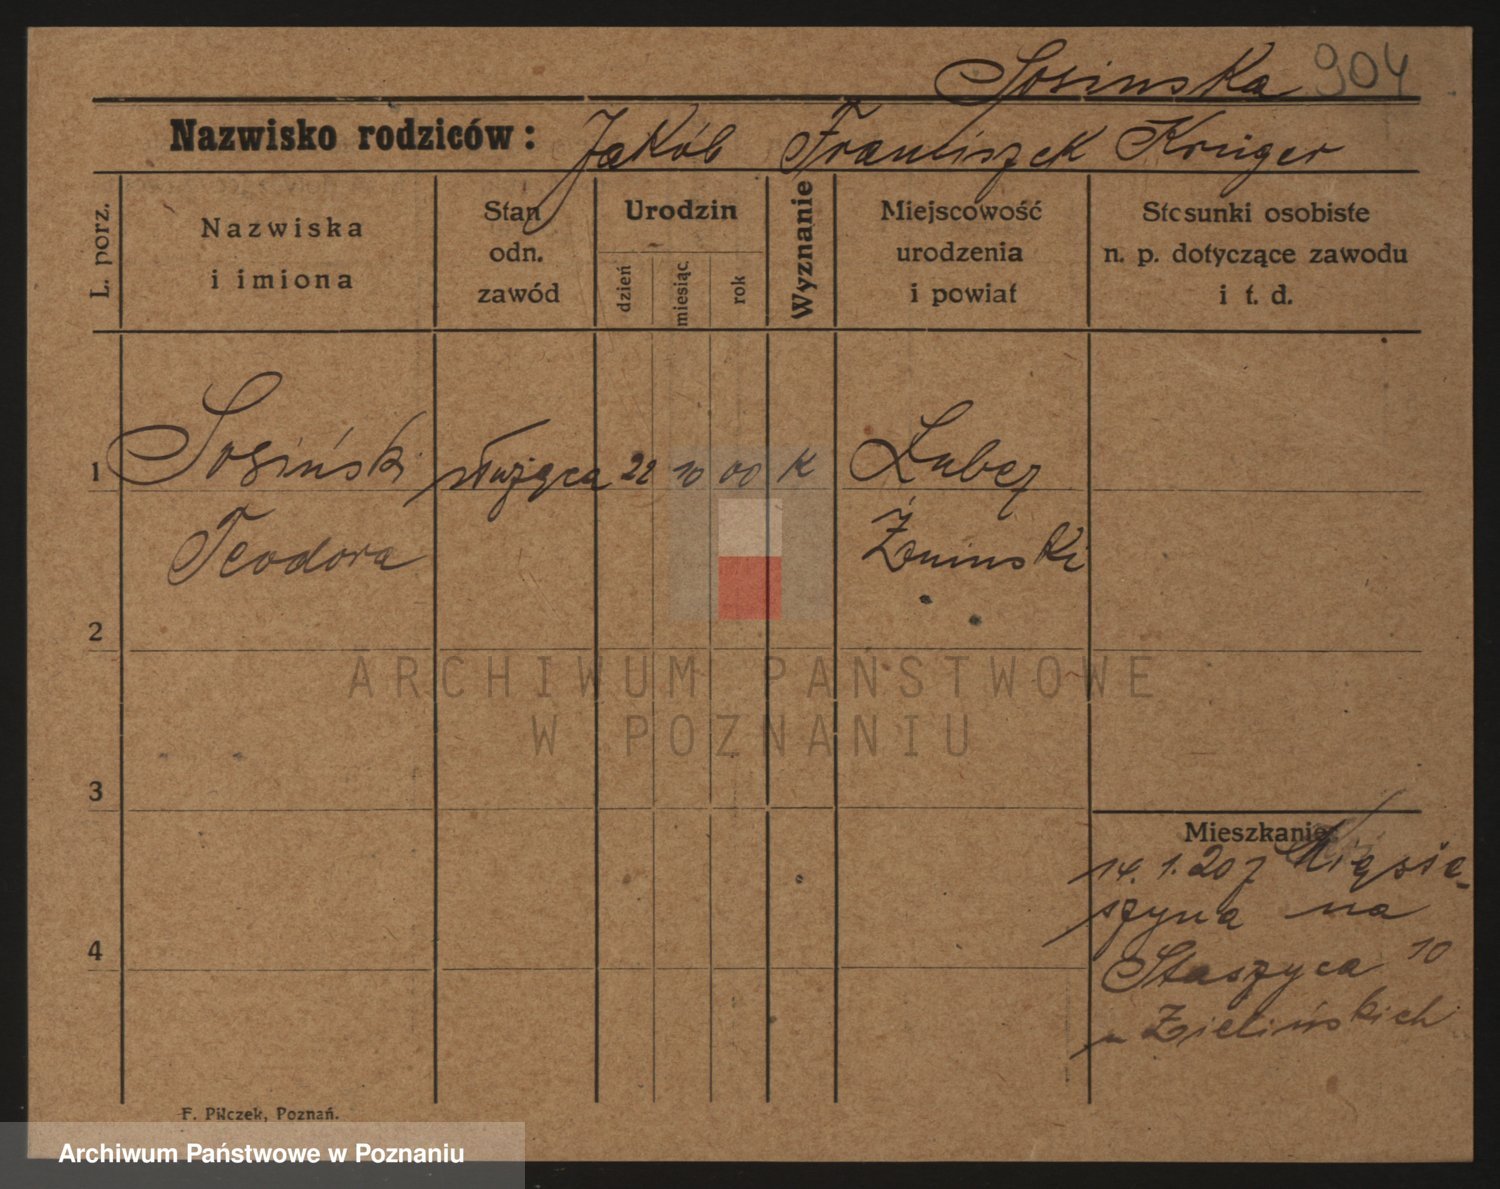 Sosinska 904
Nazwisko rodziców: Jakób Franciszek Krüger
L. porz.
Nazwiska
i imiona
Stan
odn.
zawód
Urodzin
dzień
miesiąc
rok
Wyznanie
Miejscowość
urodzenia
i powiat
Stosunki osobiste
n. p. dotyczące zawodu
i t. d.
1 Sosiński służąca 22 10 00 K
Teodora Żninski
2
3
4
Mieszkanie:
14. 1. 20 z
na
Staszyca 10
u Zielińskich
F. Pilczek, Poznań.
ARCHIWUM PAŃSTWOWE
W POZNANIU
Archiwum Państwowe w Poznaniu